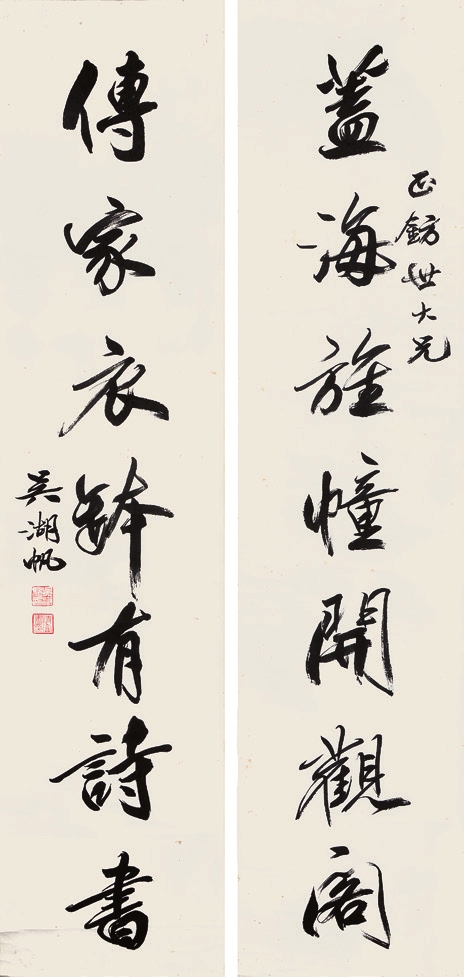 正鈁世大兄
蓋海旌幢開觀閣
傳家衣缽有詩書
吳湖帆